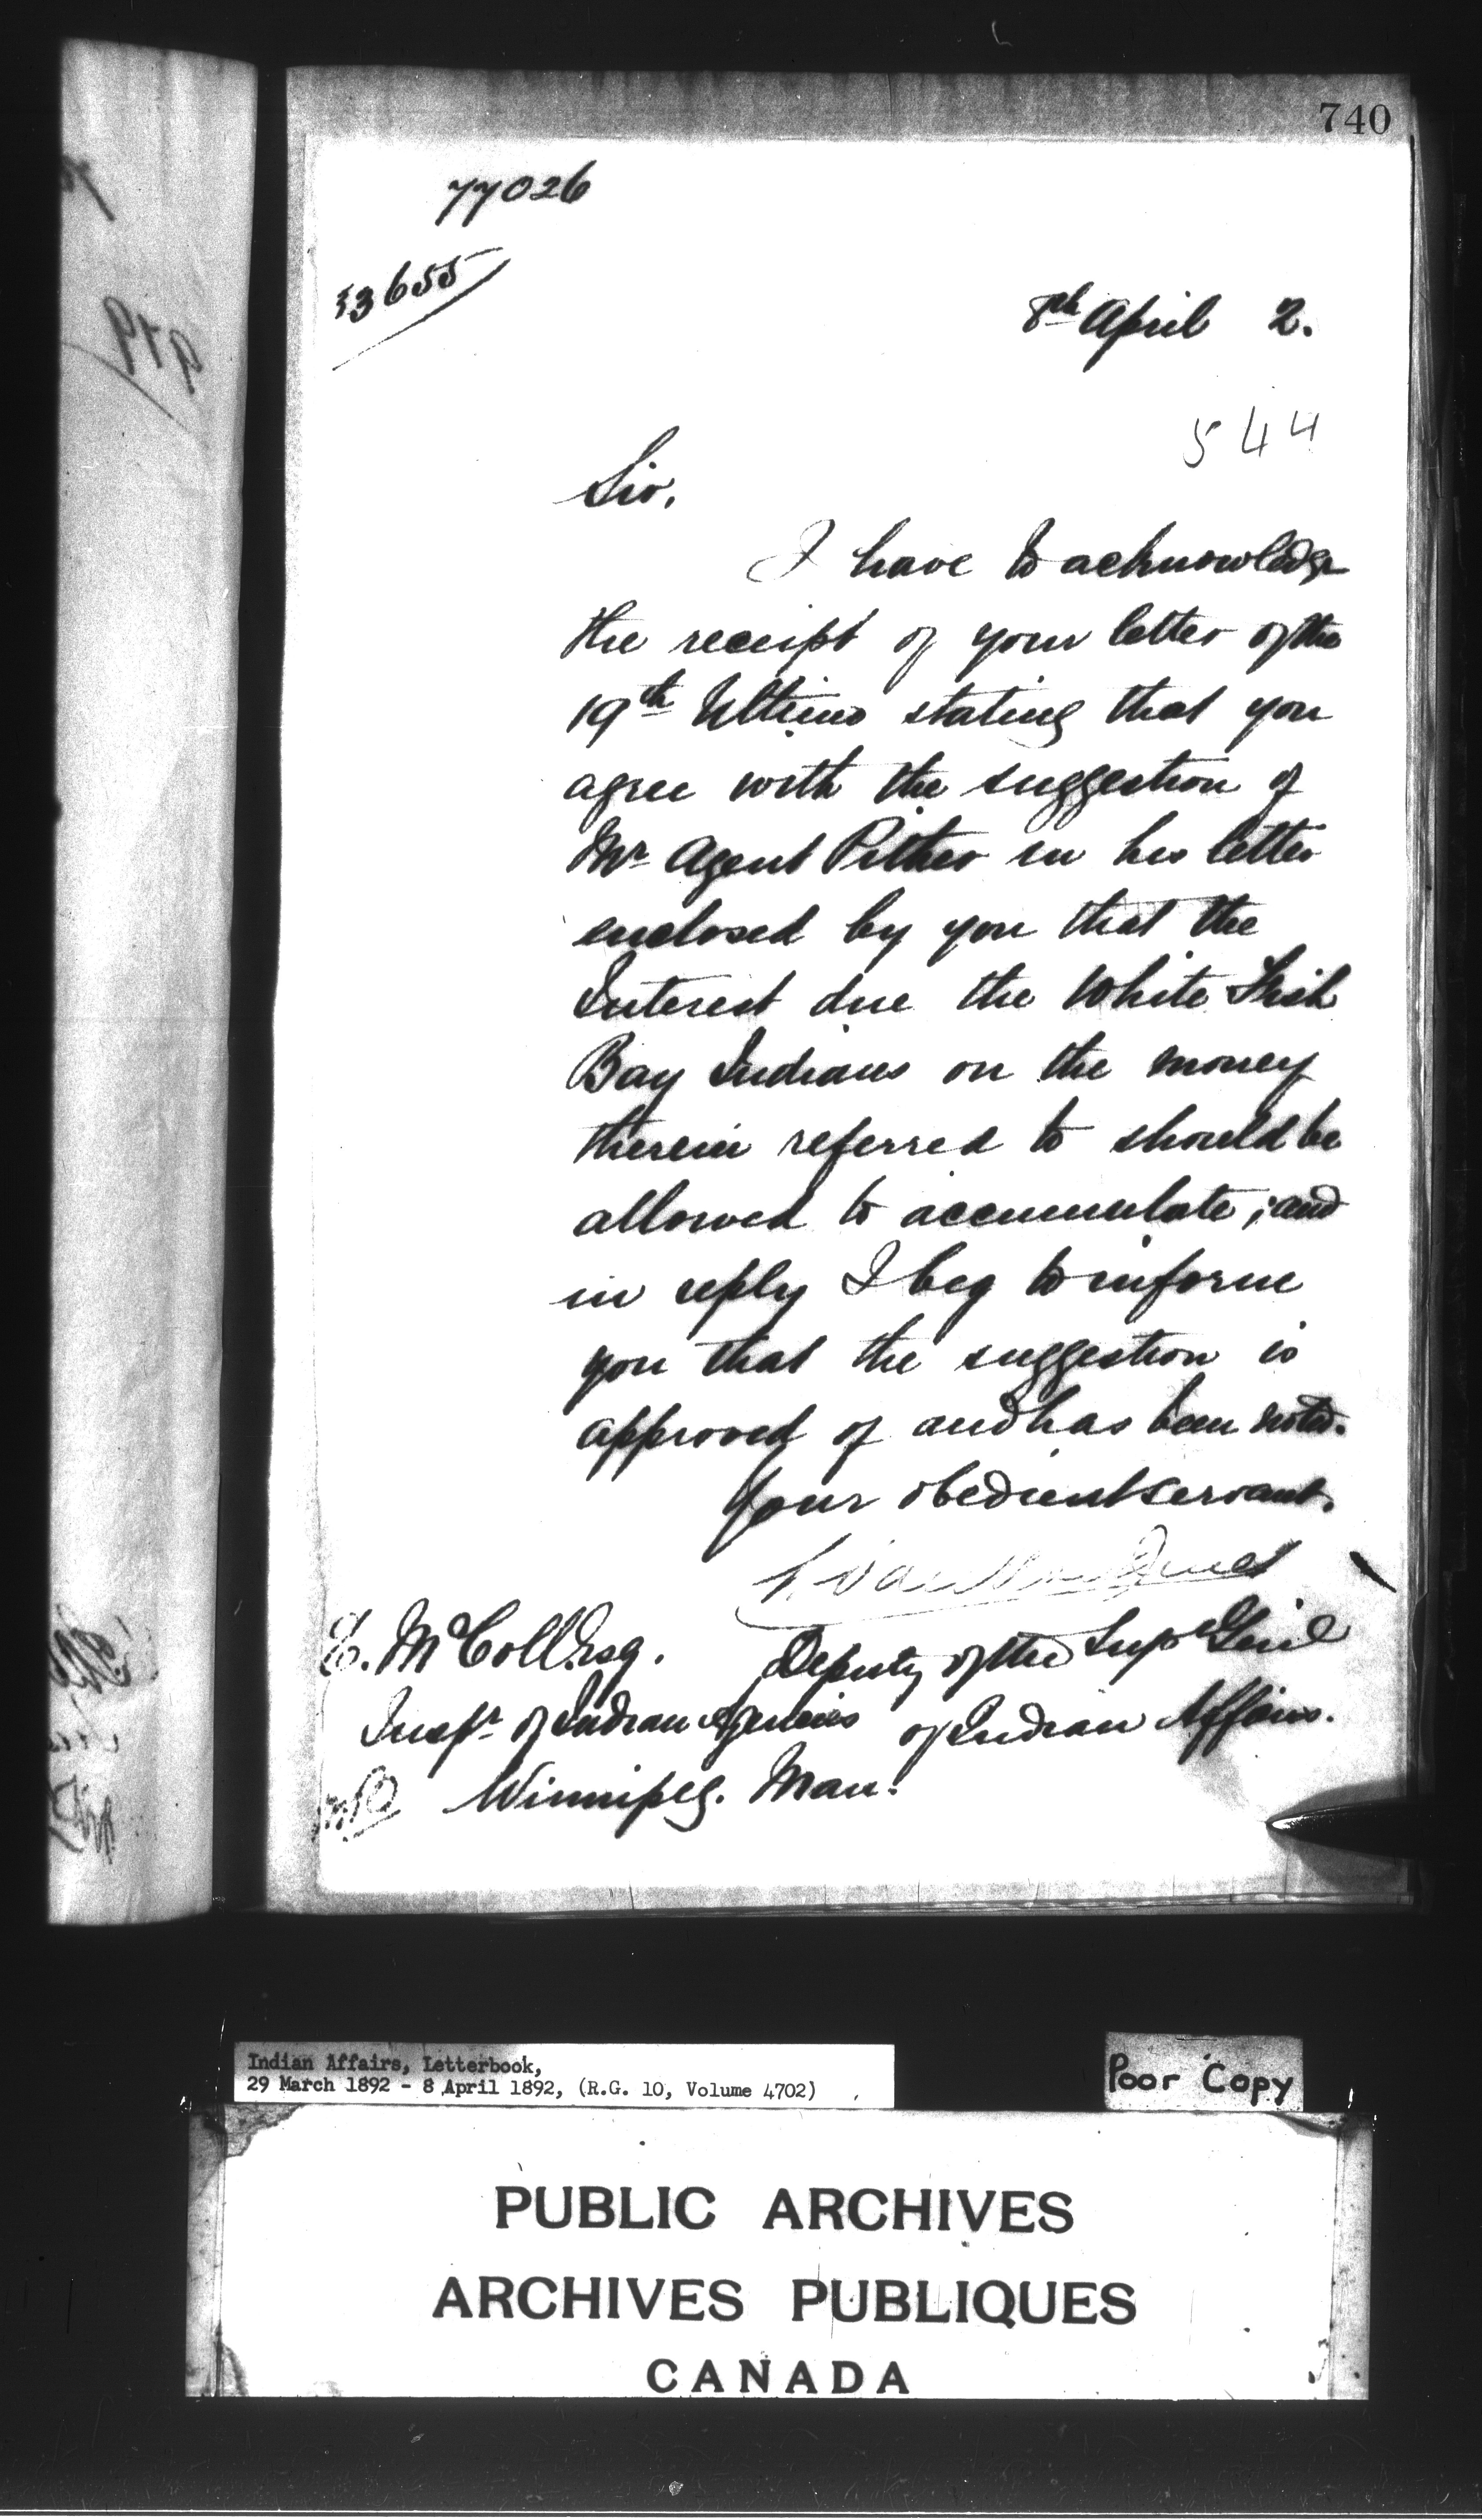 740
77026
33655
8th April 2.
544
Sir,
I have to acknowledge
the receipt of your letter of the
19th Ultimo stating that you
agree with the suggestion of
Mr Agent Pither in his letter
enclosed by you that the
Interest due the White Fish
Bay Indians on the money
therein referred to should be
allowed to accumulate; and
in reply I beg to inform
you that the suggestion is
approved of and has been noted.
Your obedient servant.
L. VanKoughnet
Deputy of the Supt Genl
of Indian Affairs.
E. McColl Esq.
Inspr of Indian Agencies
Winnipeg. Man.
Indian Affairs, Letterbook,
29 March 1892 - 8 April 1892, (R.G. 10, Volume 4702)
Poor Copy
PUBLIC ARCHIVES
ARCHIVES PUBLIQUES
CANADA